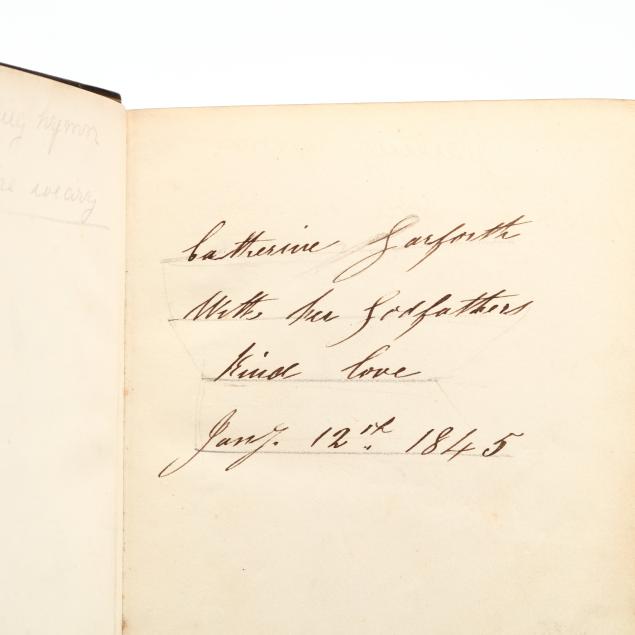 hymn
weary
Catherine Garforth
With her Godfathers
Kind love
Jany. 12th 1845